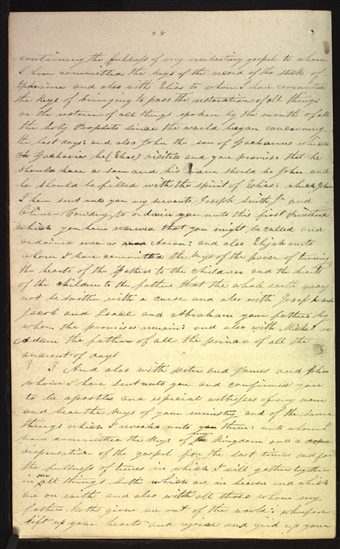 containing the fullness of my everlasting gospel to whom
I have committed the keys of the record of the stick of
Ephraim and also with Elias to whom I have committed
the keys of bringing to pass the restoration of all things
or the restorer of all things spoken by the mouth of all
the holy Prophets since the world began concerning
the last days and also John the son of Zacharias which
Zacharias he (Elias) visited and gave promise that he
should have a son and his name should be John and
he should be filled with the spirit of Elias which John
I have sent unto you my servants Joseph Smith Jr and
Oliver Cowdery to ordain you unto this first Priesthood
which you have received that you might be called and
ordained even as Aaron and also Elijah unto
whom I have committed the keys of the power of turning
the hearts of the Fathers to the children and the hearts
of the children to the fathers that the whole earth may
not be smitten with a curse and also with Joseph and
Jacob and Isaac and Abraham your fathers by
whom the promises remain and also with Michael or
Adam the father of all the prince of all the
ancient of days
3 And also with Peter and James and John
whom I have sent unto you and confirmed you
to be apostles and especial witnesses of my name
and bear the keys of your ministry and of the same
things which I revealed unto them unto whom I
have committed the keys of my Kingdom and a
dispensation of the gospel for the last times and for
the fullness of times in which I will gather together
in one all things both which are in heaven and which
are on earth and also with all those whom my
father hath given me out of the world wherefore
lift up your hearts and rejoice and gird up your